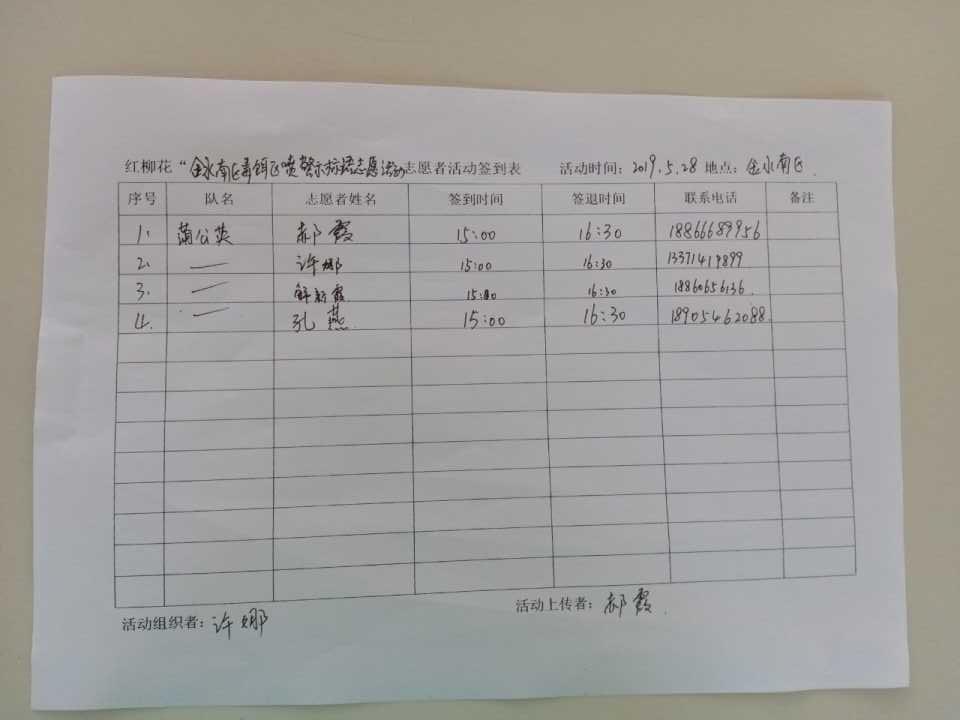 红柳花“金水南区毒饵区喷警示标语志愿活动志愿者活动签到表 活动时间：2019.5.28 地点：金水南区.
序号 队名 志愿者姓名 签到时间 签退时间 联系电话 备注
1. 蒲公英 郝霞 15:00 16:30 18866689956
2. — 许娜 15:00 16:30 13371419899
3. — 解新霞 15:00 16:30 18860656136.
4. — 孔燕 15:00 16:30 18905462088
活动组织者：许娜 活动上传者：郝霞.